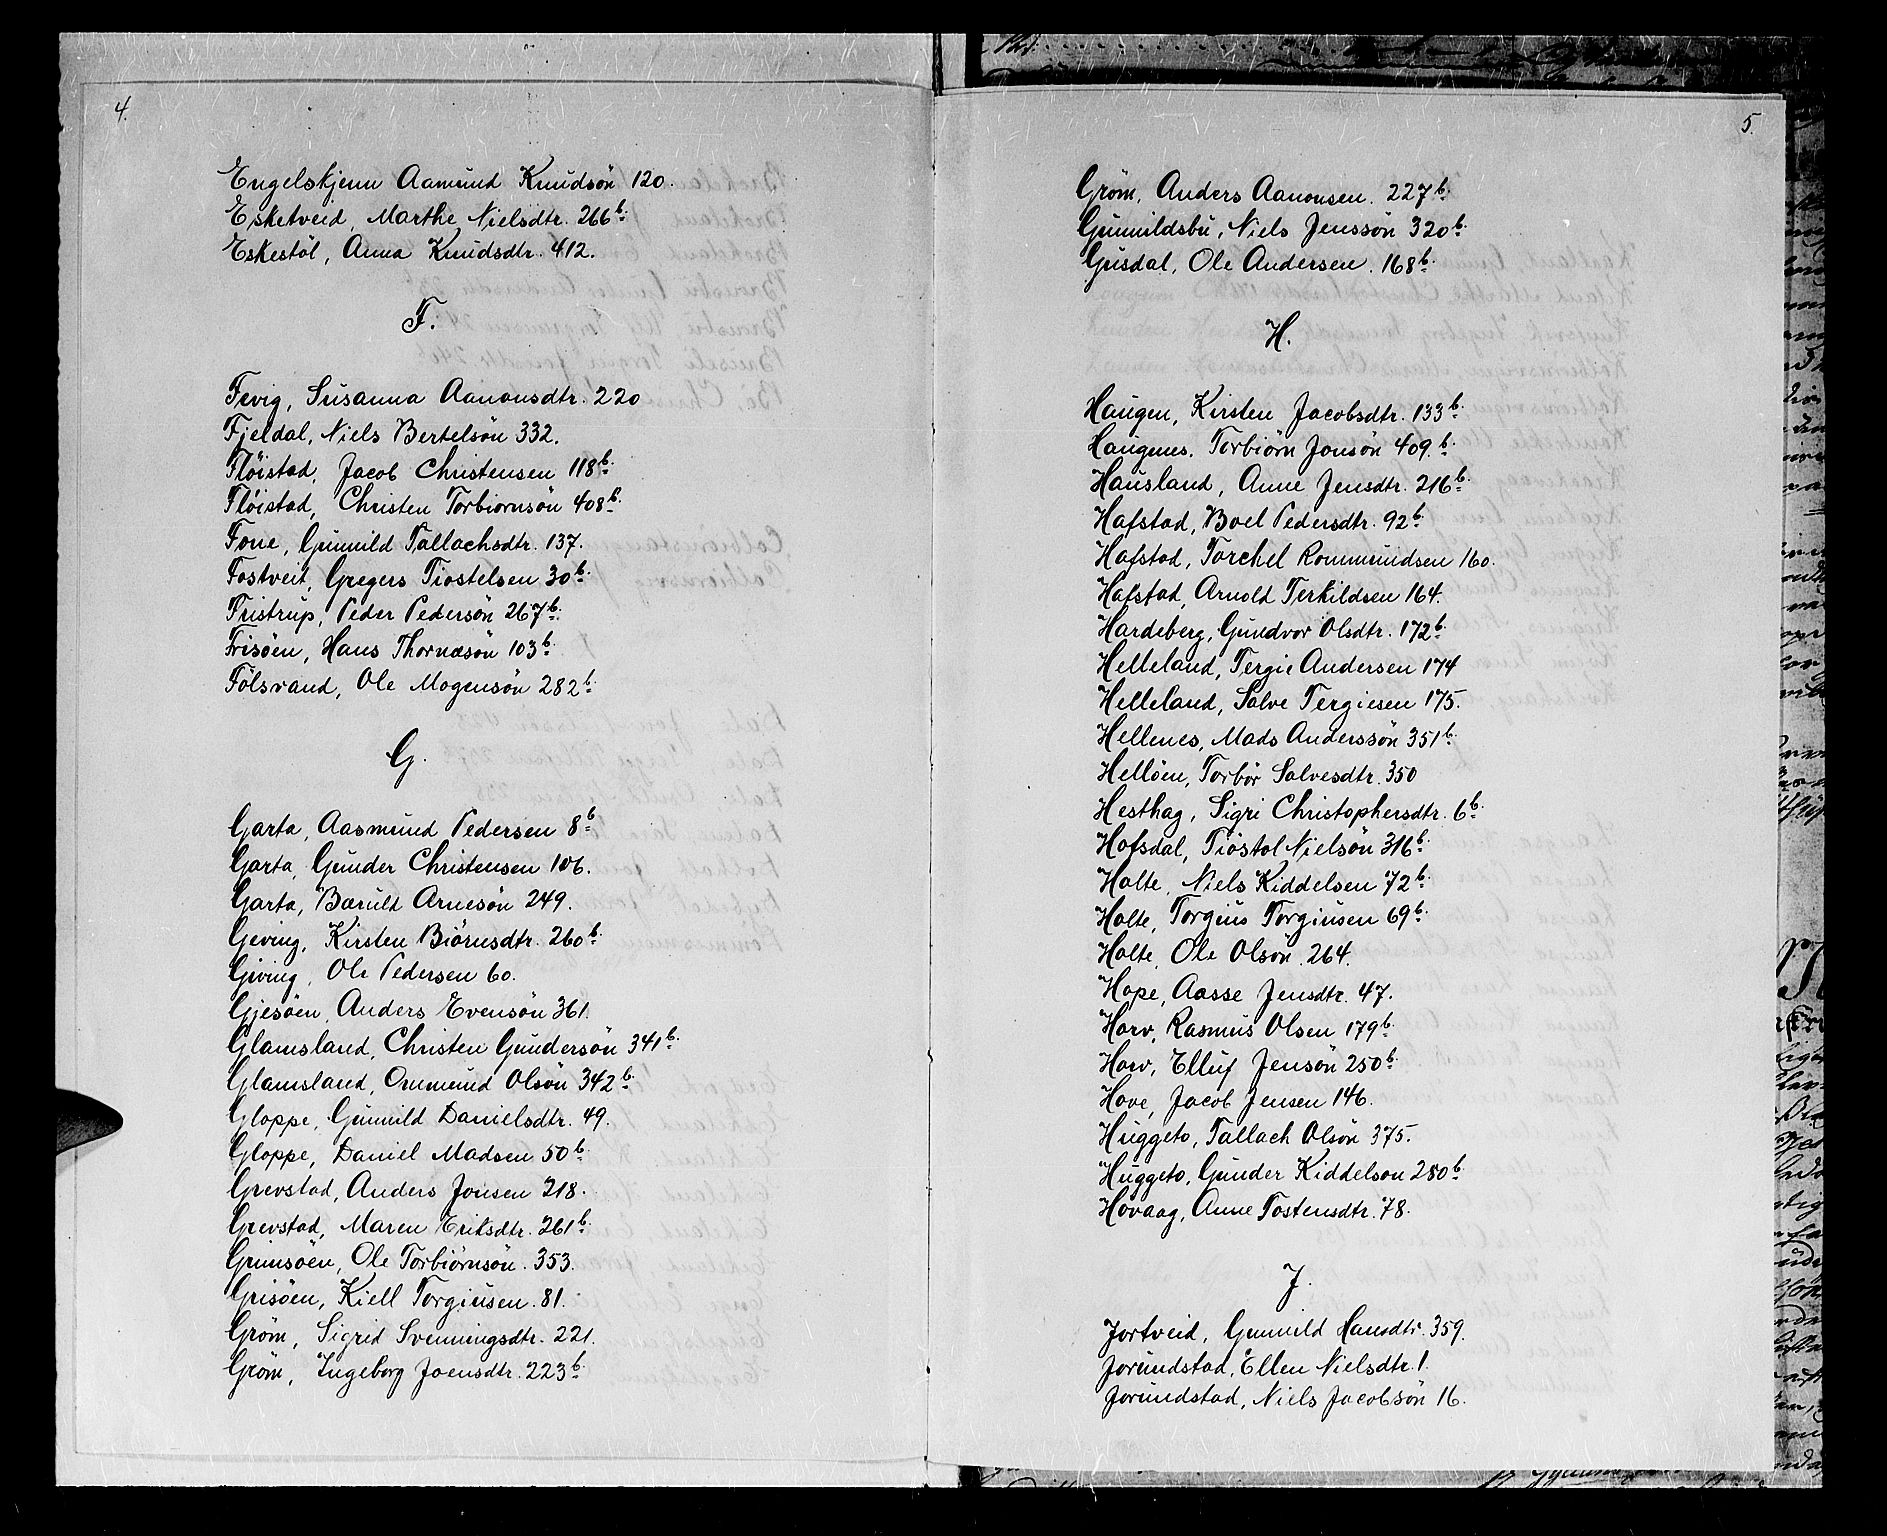 4.
Engelskjenn Aamund Knudsön 120.
Esketveid, Marthe Nielsdtr. 266b.
Eskestöl, Anna Knudsdtr. 412.
F.
Fevig, Susanna Aanonsdtr. 220
Fjeldal, Niels Bertelsön 332.
Flöistad, Jacob Christensen 118b.
Flöistad, Christen Torbiornsön 408b.
Fone, Gunnild Tallachsdtr. 137.
Fostveit, Gregers Tiostelsen 30b.
Fristrup, Peder Pedersön 267b.
Frisöen, Hans Thornæsön 103b.
Fölsvand, Ole Mogensön 282b.
G.
Garta, Aasmund Pedersen 8b.
Garta, Gunder Christensen 106.
Garta, Bæruld Arnesön 249.
Geving, Kirsten Biörnsdtr. 260b.
Giving, Ole Pedersen 60.
Gjesöen, Anders Evensön 361.
Glamsland, Christen Gundersön 341b.
Glamsland, Ommund Olsön 342b.
Gloppe, Gunnild Danielsdtr. 49.
Gloppe, Daniel Madsen 50b.
Grevstad, Anders Jonsen 218.
Grevstad, Maren Eriksdtr. 261b.
Grimsöen, Ole Torbiörnsön. 353.
Grisöen, Kiell Torgiusen. 81.
Gröm, Sigrid Svenningsdtr. 221.
Gröm, Ingeborg Joensdtr. 223b.
5.
Gröm, Anders Aanonsen. 227b.
Gunnildsbu, Niels Jenssön 320b.
Gusdal, Ole Andersen. 168b.
H.
Haugen, Kirsten Jacobsdtr. 133b.
Haugenes. Torbiörn Jonsön 409.b.
Hausland, Anne Jensdtr. 216b.
Hafstad, Boel Pedersdtr. 92b.
Hafstad, Torchel Rommundsen 160.
Hafstad, Arnold Terkildsen 164.
Hardeberg, Gundvor Olsdtr. 172b.
Helleland, Tergie Andersen 174
Helleland, Salve Tergiesen 175.
Hellenes, Mads Anderssön 351b.
Hellöen, Torbör Salvesdtr. 350
Hesthag, Sigri Christophersdtr. 6b.
Hofsdal, Tiöstol Nielsön 316b.
Holte, Niels Kiddelsen 72b.
Holte, Torgius Torgiusen 69b.
Holte, Ole Olsön 264.
Hope, Aasse Jensdtr. 47.
Horv, Rasmus Olsen 179b.
Horv, Elluf Jensön 250b.
Hove, Jacob Jensen 146.
Huggeto, Tallach Olsön 375.
Huggeto, Gunder Kiddelson 280b.
Hövaag, Anne Tostensdtr. 78.
J.
Jortveid, Gunnild Hansdtr. 359.
Jorundstad, Ellen Nielsdtr. 1.
Jorundstad, Niels Jacobsön 16.